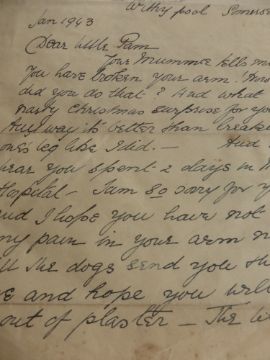 Withypool Somerse
Jan 1943
Dear little Pam
Your Mummie tells m
You have broken your arm.
did you do that? I had what
nasty Christmas surprise for yo
Anyway its better than breake
ones leg like I did. — And
hear you spent 2 days in
Hospital — I am so sorry for y
and I hope you have not
ny pain in your arm n
ll the dogs send you the
e and hope you will
out of plaster — The w